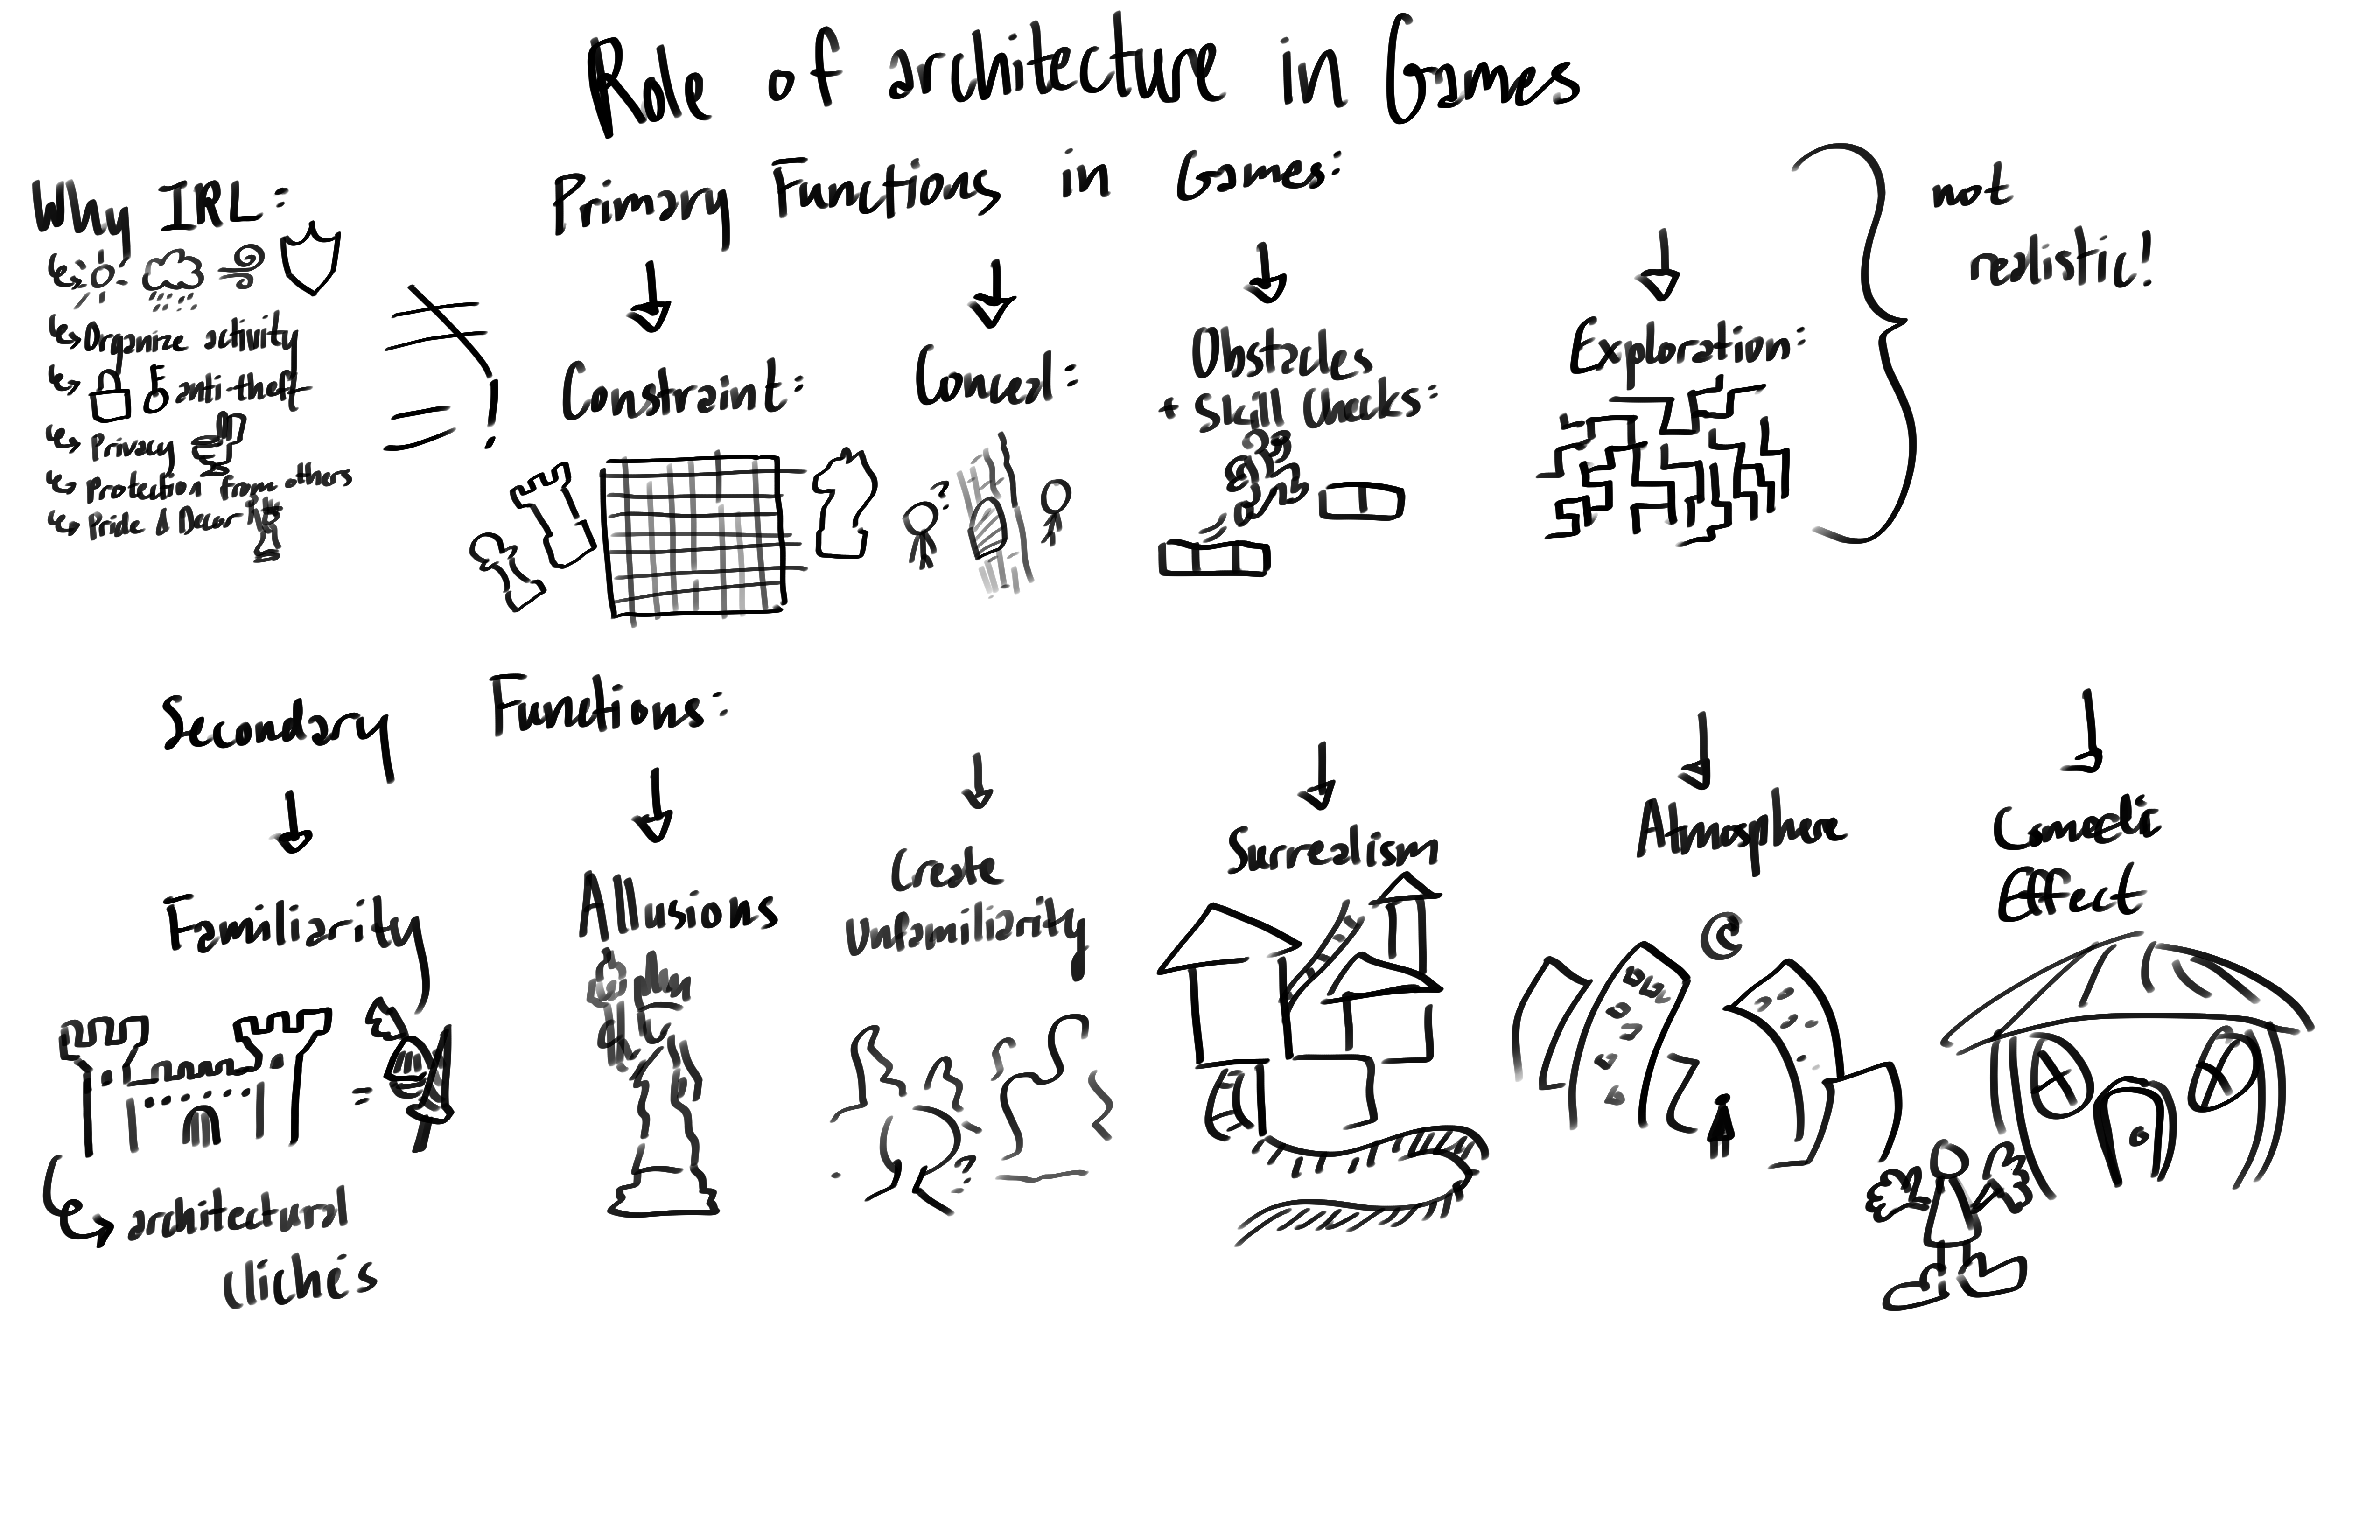 Role of architecture in Games
Why IRL:
Organize activity
anti-theft
Privacy
Protection from others
Pride & Decor
Primary Functions in Games:
Constraint:
Conceal:
?
Obstacles
+ Skill Checks:
Exploration:
not
realistic!
Secondary Functions:
Familiarity
=
architectural
clichés
Allusions
Create
Unfamiliarity
?
Surrealism
Atmosphere
Effect